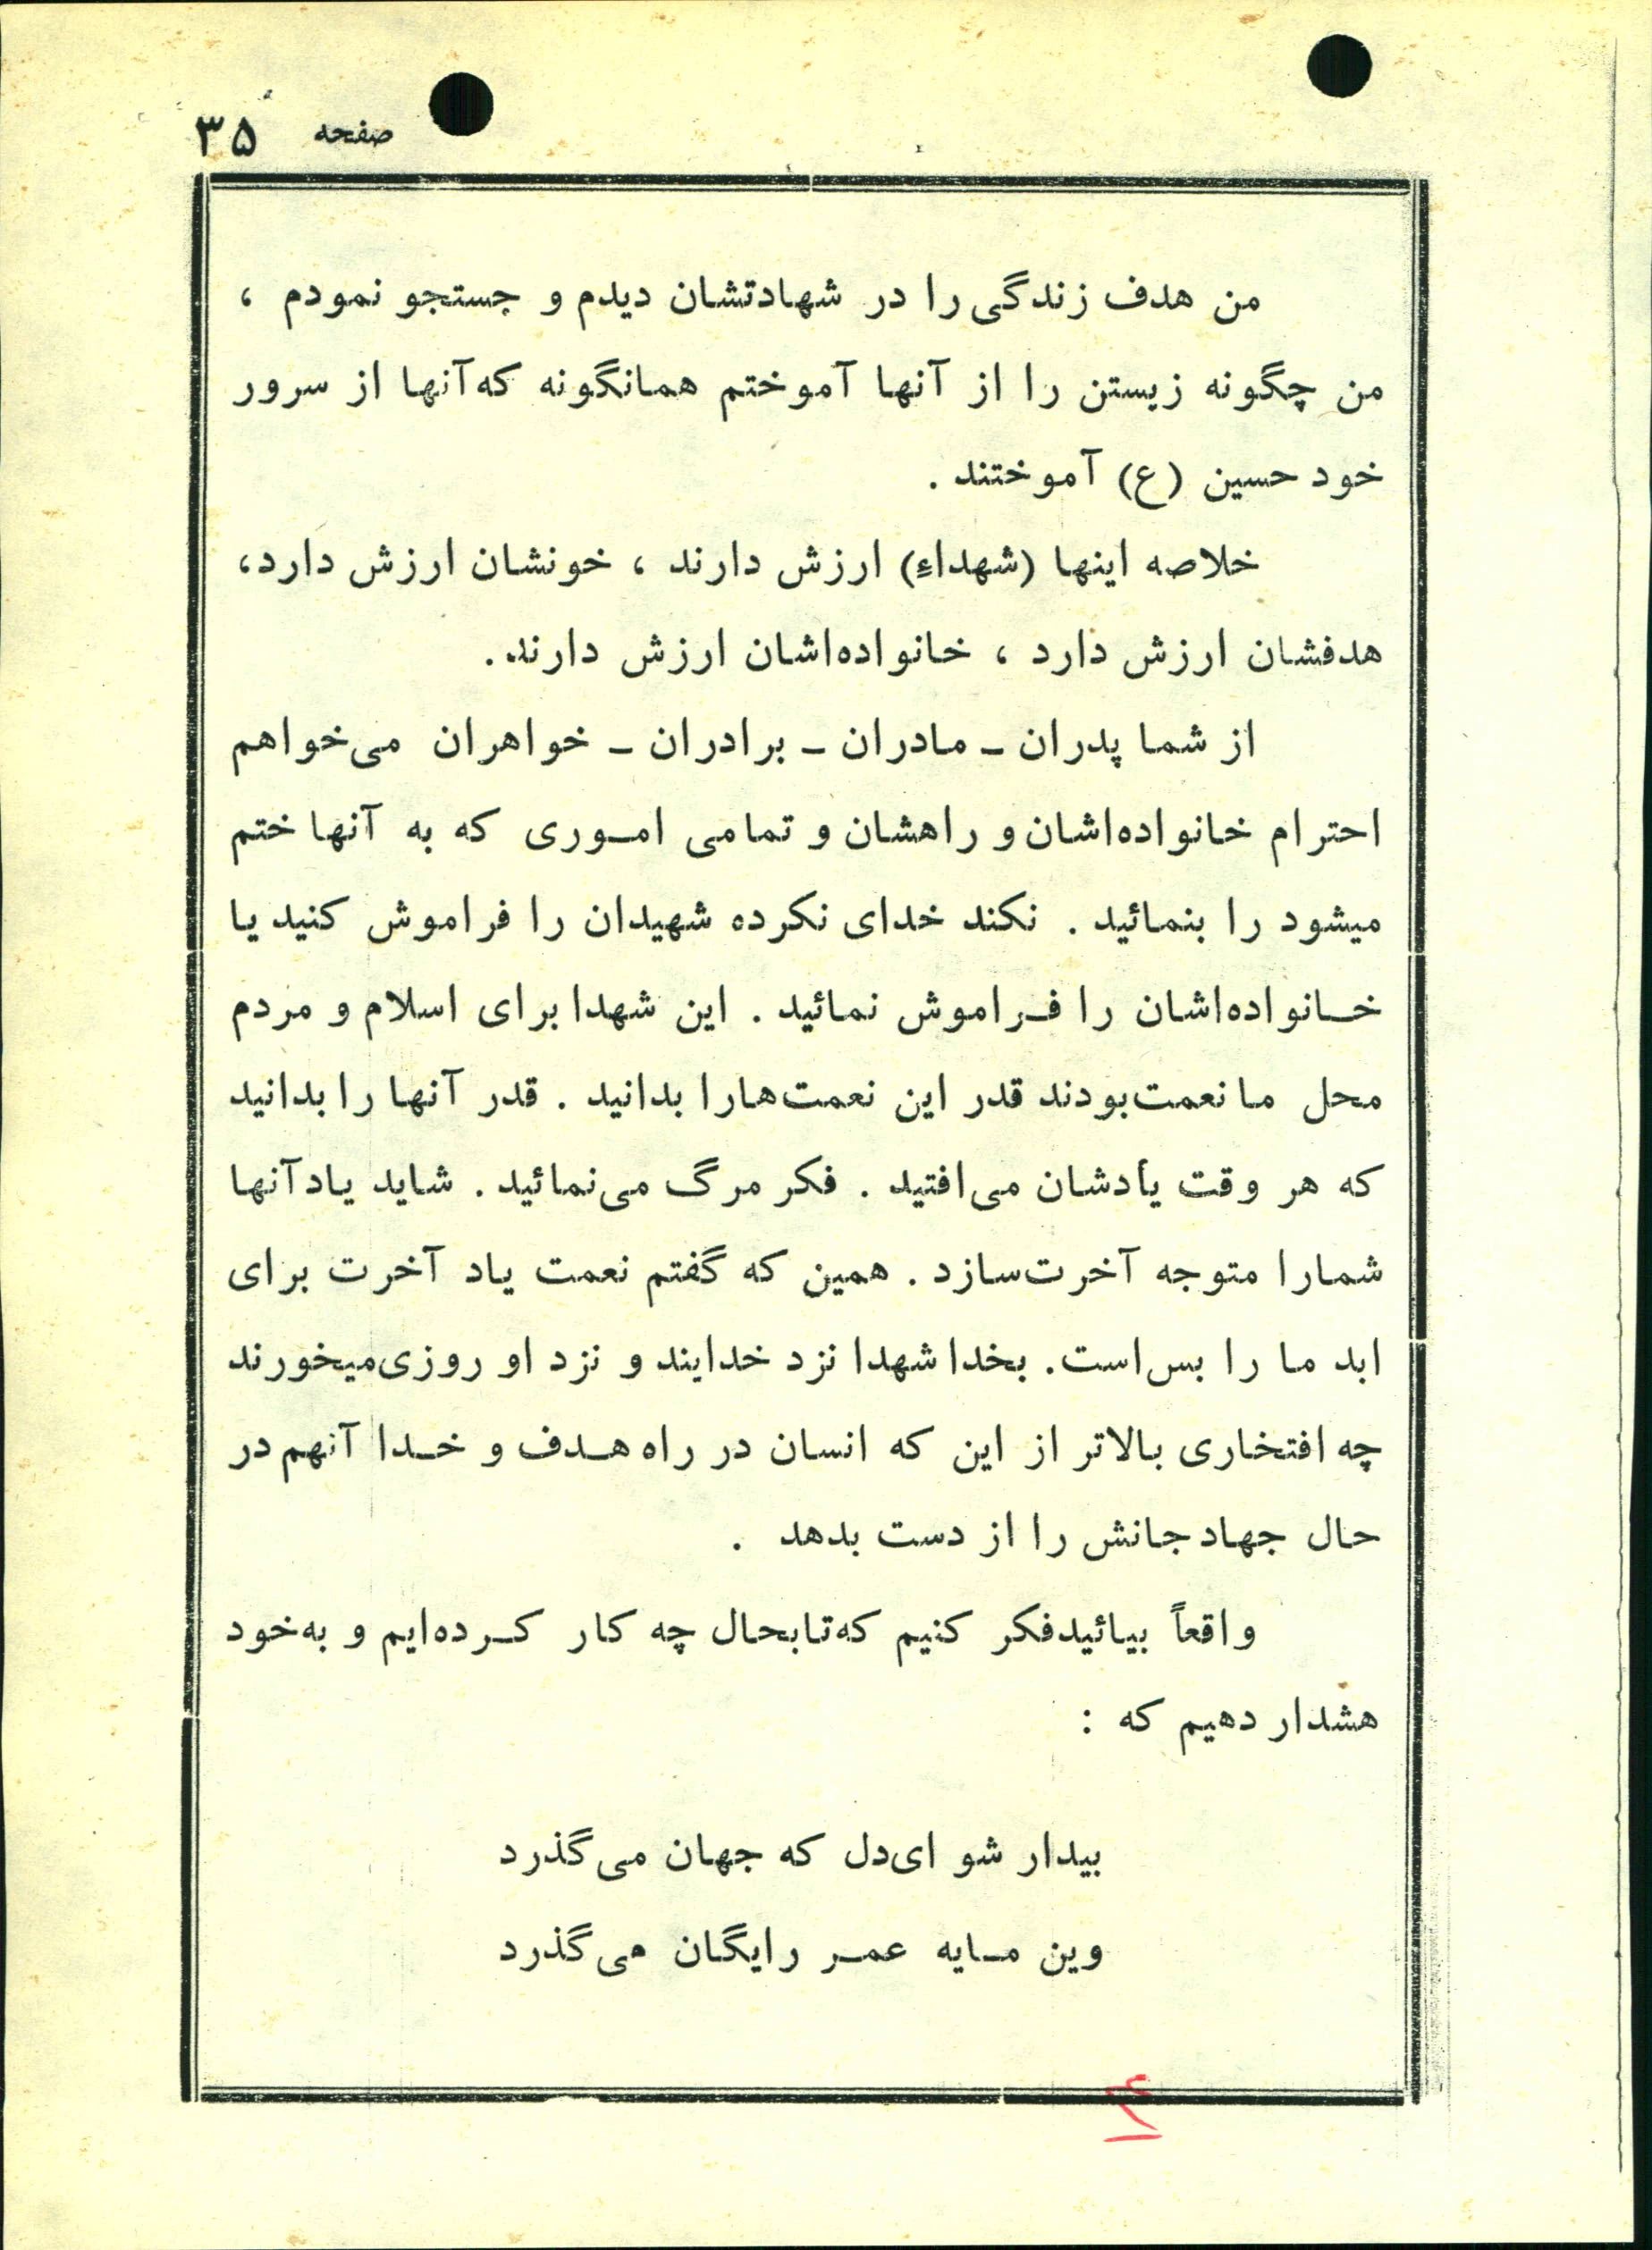 صفحه ۳۵
من هدف زندگی را در شهادتشان دیدم و جستجو نمودم ،
من چگونه زیستن را از آنها آموختم همانگونه که‌آنها از سرور
خود حسین (ع) آموختند .
خلاصه اینها (شهداء) ارزش دارند ، خونشان ارزش دارد،
هدفشان ارزش دارد ، خانواده‌اشان ارزش دارند.
از شما پدران ـ مادران ـ برادران ـ خواهران می‌خواهم
احترام خانواده‌اشان و راهشان و تمامی امـوری که به آنها ختم
میشود را بنمائید . نکند خدای نکرده شهیدان را فراموش کنید یا
خـانواده‌اشان را فـراموش نمائید . این شهدا برای اسلام و مردم
محل ما نعمت‌بودند قدر این نعمت‌هارا بدانید . قدر آنها را بدانید
که هر وقت یادشان می‌افتید . فکر مرگ می‌نمائید . شاید یاد آنها
شمارا متوجه آخرت‌سازد . همین که گفتم نعمت یاد آخرت برای
ابد ما را بس‌است. بخدا شهدا نزد خدایند و نزد او روزی‌میخورند
چه افتخاری بالاتر از این که انسان در راه هـدف و خـدا آنهم در
حال جهاد جانش را از دست بدهد .
واقعاً بیائیدفکر کنیم که‌تابحال چه کار کـرده‌ایم و به‌خود
هشدار دهیم که :
بیدار شو ای‌دل که جهان می‌گذرد
وین مـایه عمـر رایگان می‌گذرد